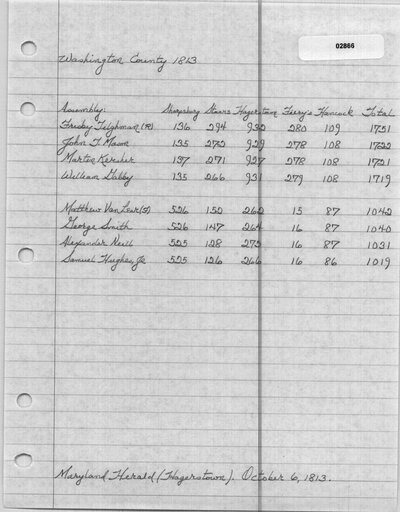 02866
Washington County 1813
Assembly: Sharpsburg Hagerstown Ferry's Hancock Total
Frisby Tilghman (R) 136 294 932 280 109 1751
John T. Mason 135 272 929 278 108 1722
Marten 137 271 927 278 108 1721
William Gabby 135 266 931 279 108 1719
Matthew Van Lear (F) 526 152 262 15 87 1042
George Smith 526 147 264 16 87 1040
Alexander Neill 525 128 275 16 87 1031
Samuel Hughes, Jr 525 126 266 16 86 1019
Maryland Herald (Hagerstown). October 6, 1813.